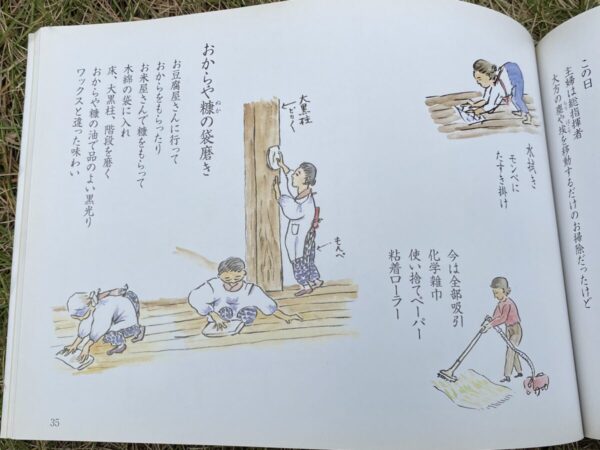 この日
主婦は総指揮者
大方の塵や埃を移動するだけのお掃除だったけど
水拭き
モンペに
たすき掛け
今は全部吸引
化学雑巾
使い捨てペーパー
粘着ローラー
大黒柱
もんぺ
おからや糠の袋磨き
ぬか
お豆腐屋さんに行って
おからをもらったり
お米屋さんで糠をもらって
木綿の袋に入れ
床、大黒柱、階段を磨く
おからや糠の油で品のよい黒光り
ワックスと違った味わい
35